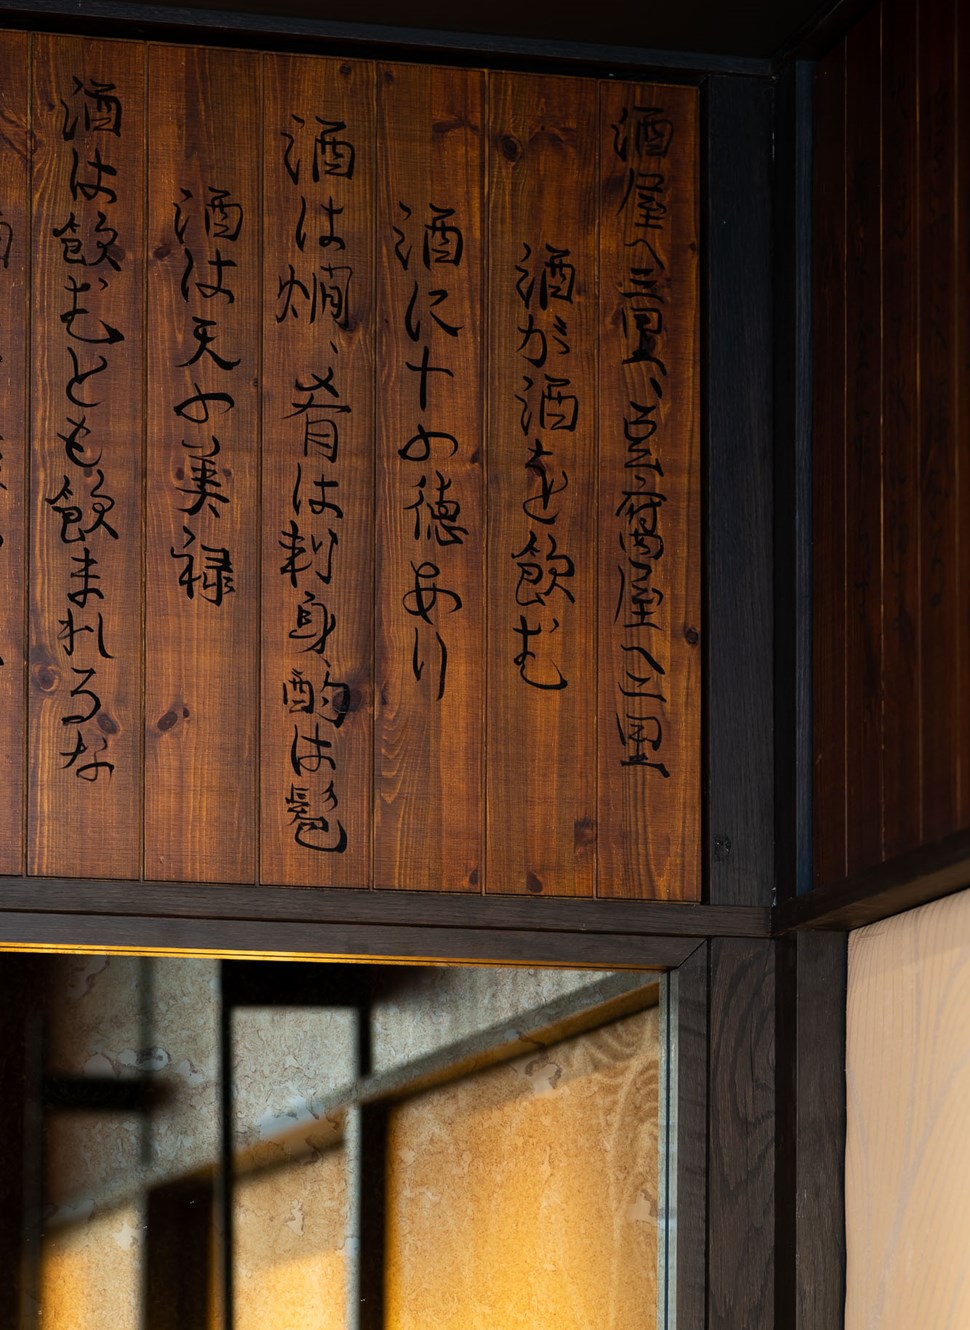 酒屋へ三里、豆腐屋へ二里
酒が酒を飲む
酒に十の徳あり
酒は燗、肴は刺身、酌は髱
酒は天の美禄
酒は飲むとも飲まれるな